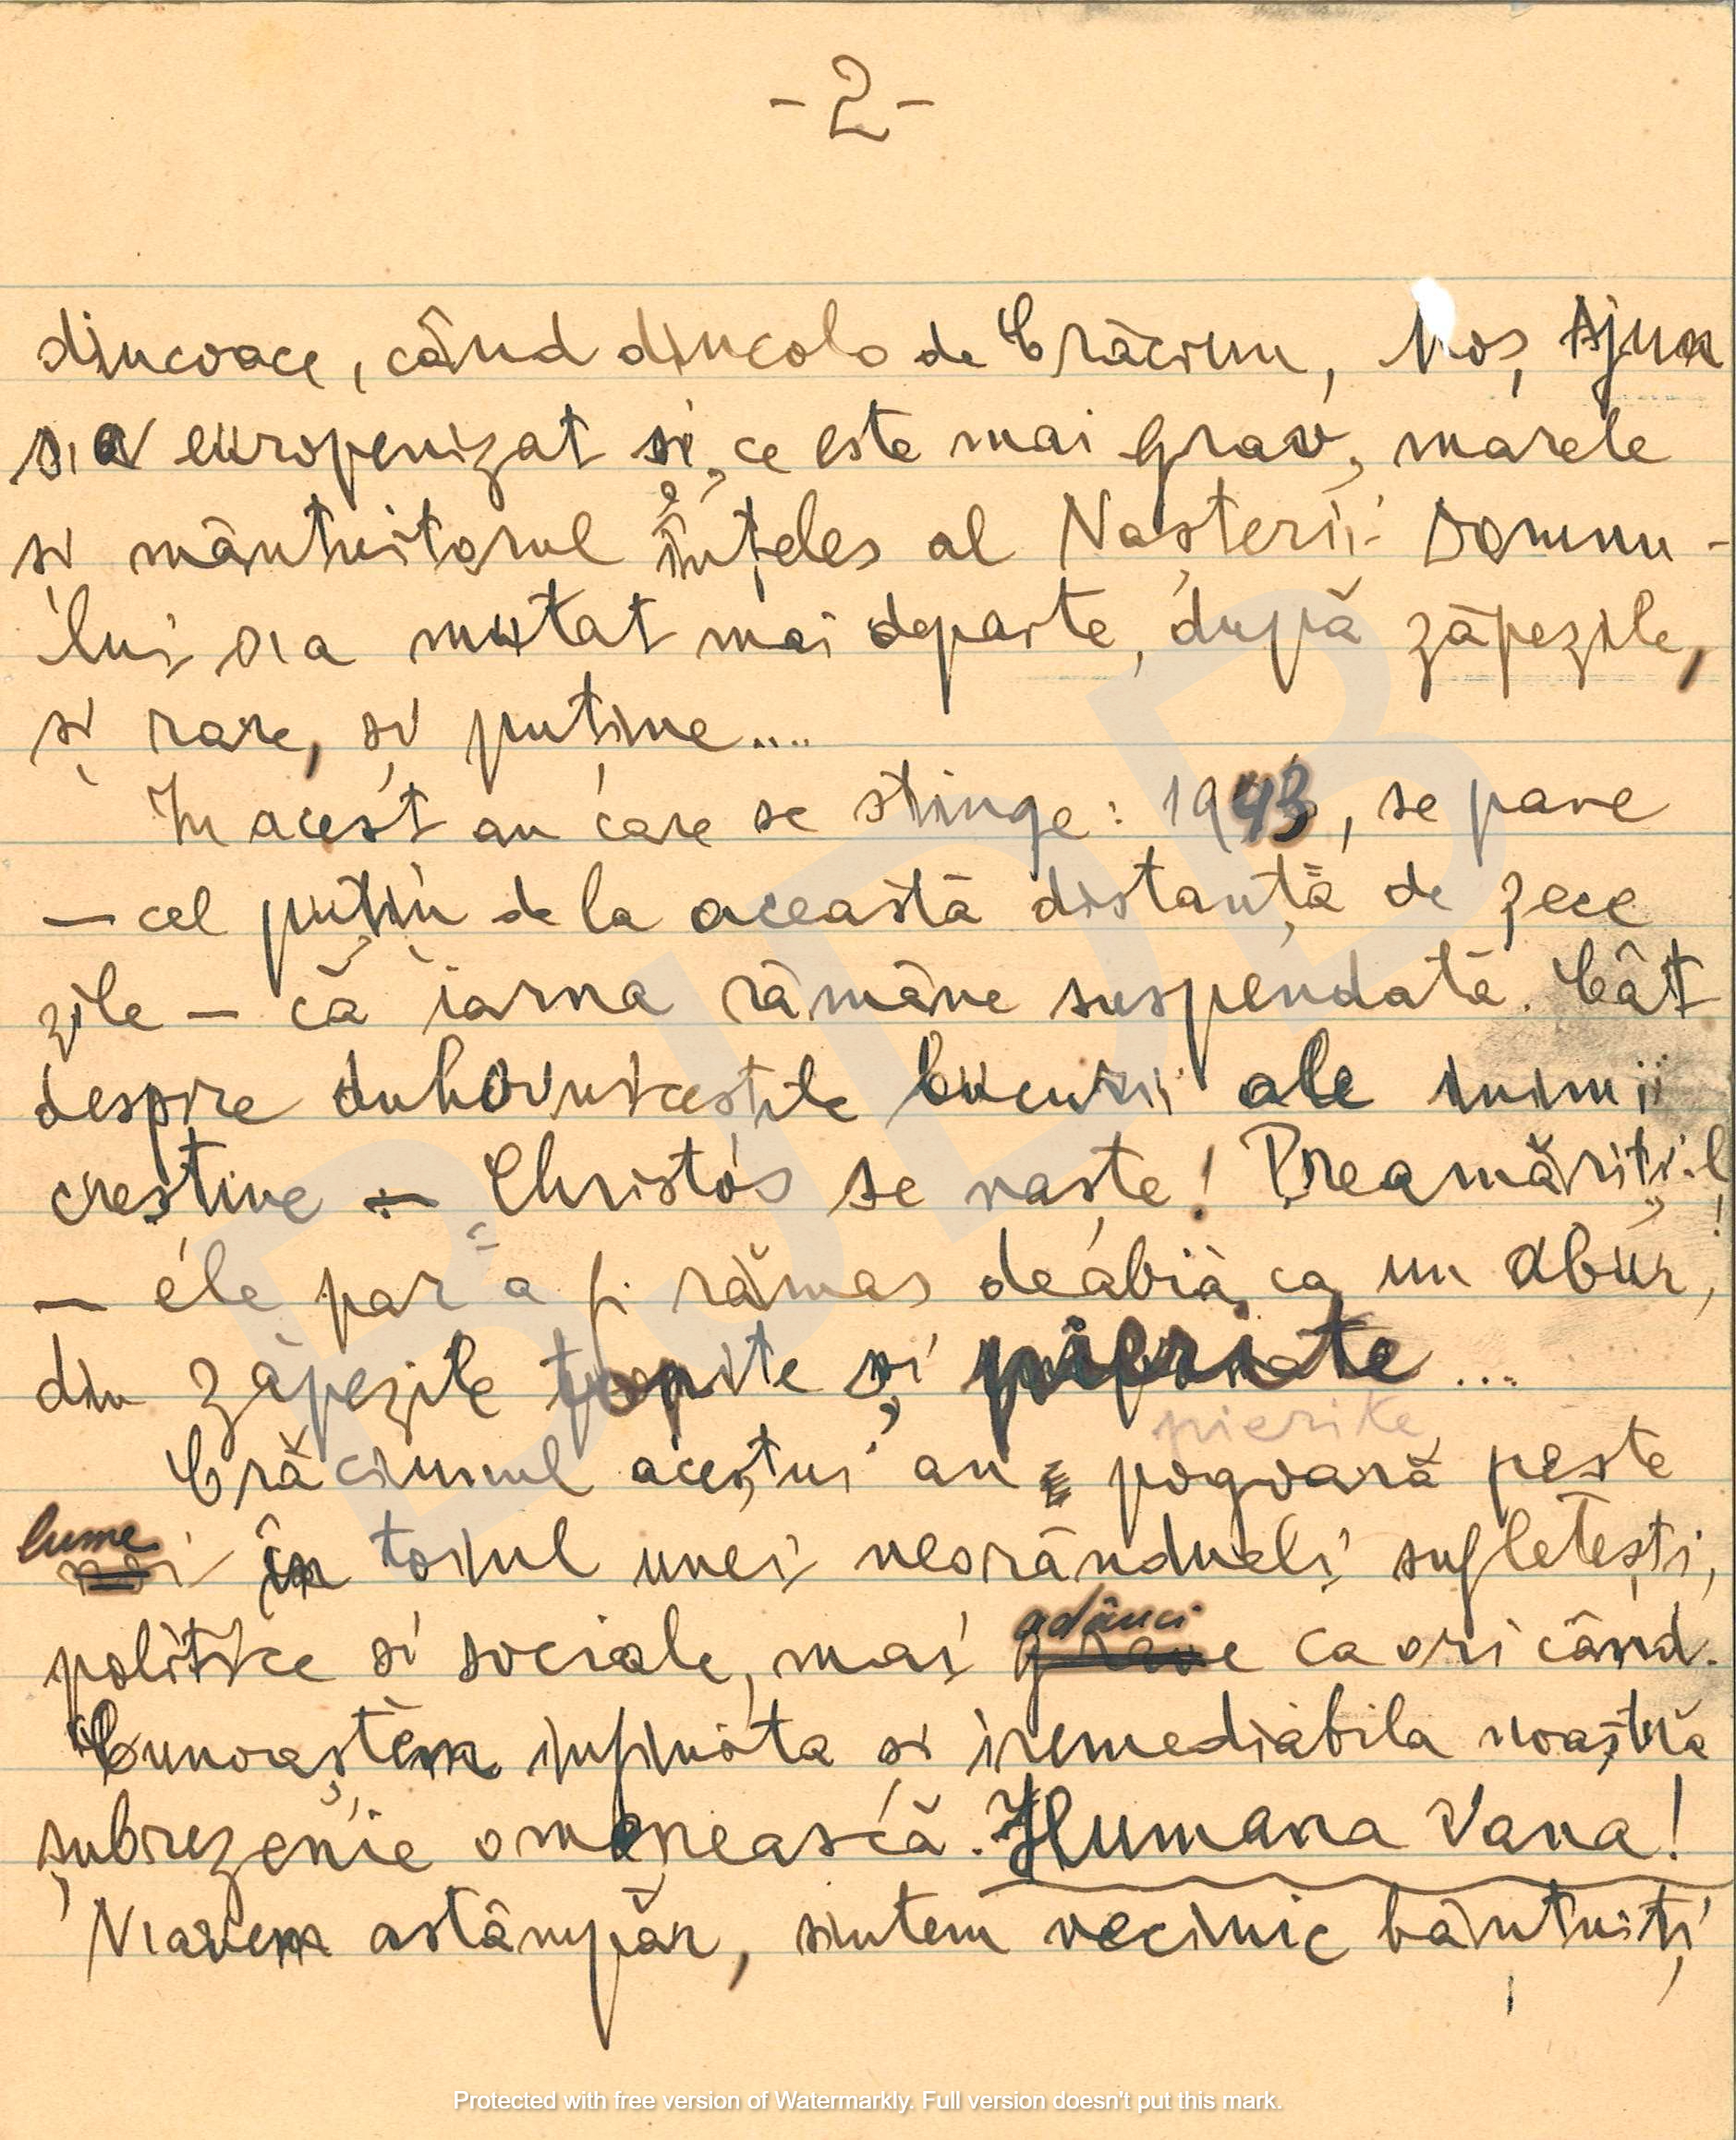 -2-
dincoace, când dincolo de Crăciun, Moș Ajun
s'a europenizat și, ce este mai grav, marele
și mântuitorul înțeles al Nașterii Domnu-
lui s'a mutat mai departe, după zăpezile,
și rare, și puține....
In acest an care se stinge: 1943, se pare
— cel puțin de la această distanță de zece
zile — că iarna rămâne suspendată. Cât
despre duhovniceștile bucurii ale inimii
creștine — "Christos se naște! Preamăriți-l!
— ele par a fi rămas deabia, ca un abur,
din zăpezile topite și pierite ...
pierite
Crăciunul acestui an pogoară peste
lume
noi în toiul unei neorândueli sufletești,
adânci
politice și sociale, mai grave ca ori când.
Cunoaștem infinita și iremediabila noastră
șubrezenie omenească. Humana Vana!
N'avem astâmpăr, sintem vecinic bântuiți
BJDB
Protected with free version of Watermarkly. Full version doesn't put this mark.